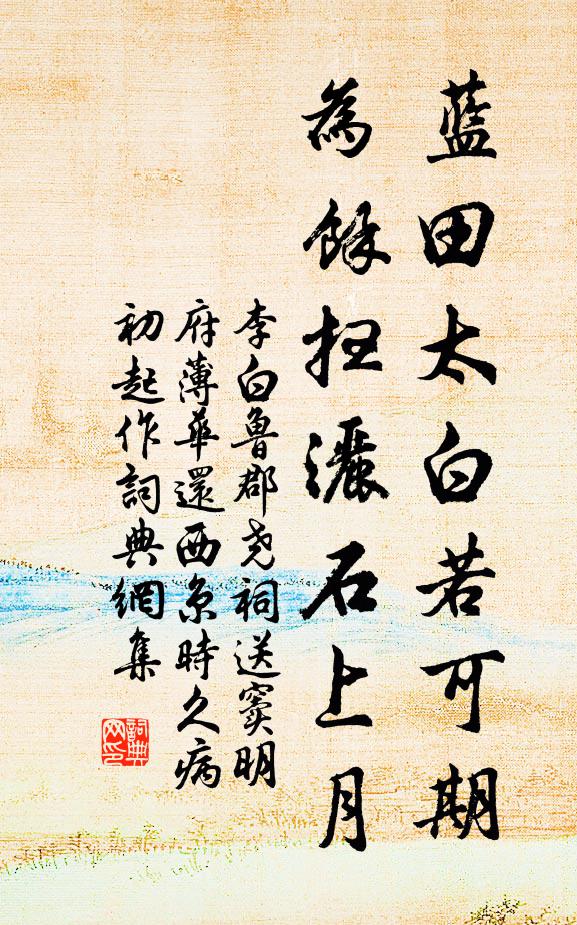 藍田太白若可期
為餘掃灑石上月
李白魯郡堯祠送竇明
府薄華還西京時久病
初起作詞典網集
詞典
网印